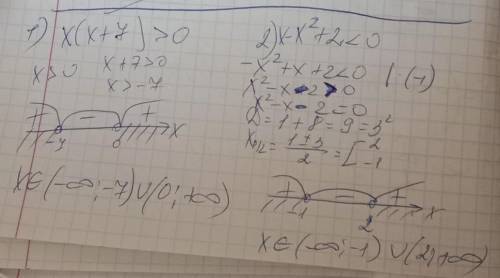 1) x(x+7)>0
x>0 x+7>0
x>-7
+ - +
-7 0 x
x∈(-∞;-7)∪(0;+∞)
2) x-x²+2<0
-x²+x+2<0 |·(-1)
x²-x-2>0
x²-x-2=0
D=1+8=9=3²
x₁/₂=(1±3)/2=[2 -1
+ - +
-1 2 x
x∈(-∞;-1)∪(2;+∞)